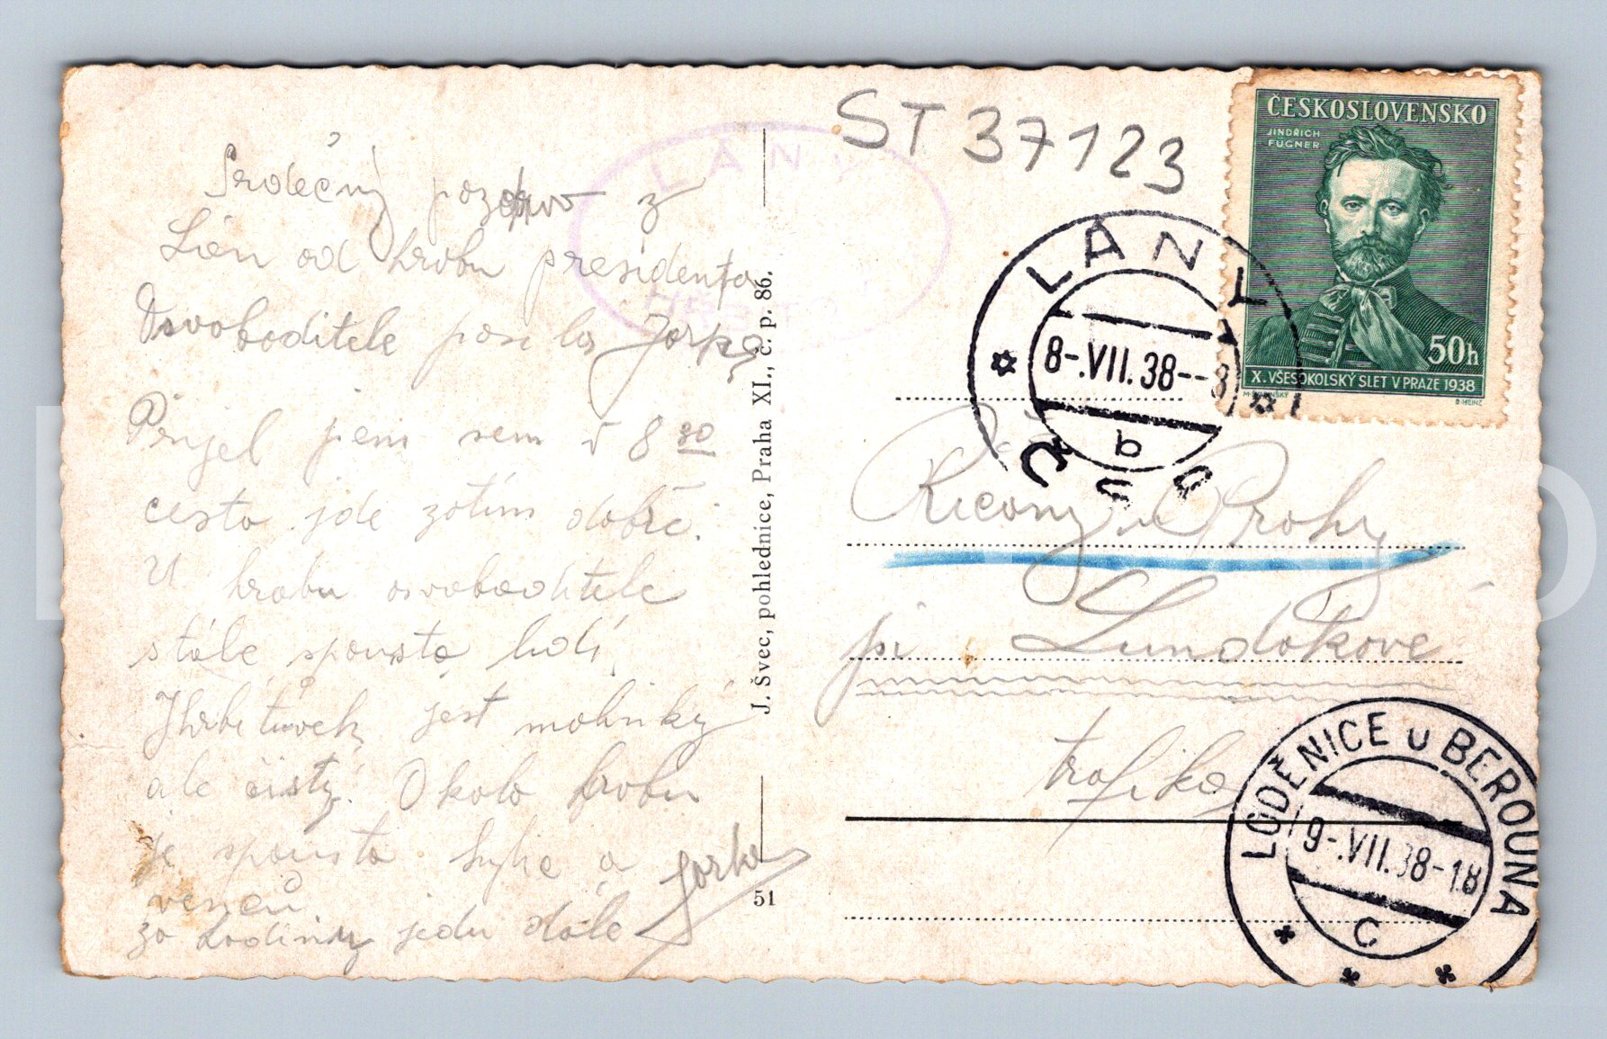 Srdečný pozdrav z
Lán od hrobu presidenta
Osvoboditele posílá
Přijel jsem sem v 8 30
cesta jde zatím dobře.
U hrobu osvoboditele
stále spousta lidí,
jest
ale čistý. Okolo hrobu
je spousta a
věnců
za hodinu jedu dále
J. Švec, pohlednice, Praha XI., č. p. 86.
51
ST 37123
LÁNY
ČESKOSLOVENSKO
JINDŘICH
FÜGNER
50h
X. VŠESOKOLSKÝ SLET V PRAZE 1938
B. HEINZ
LÁNY
8-.VII.38--8
b
ČSR
Říčany u Prahy
trafika
LODĚNICE U BEROUNA
9-.VII.38-18
C